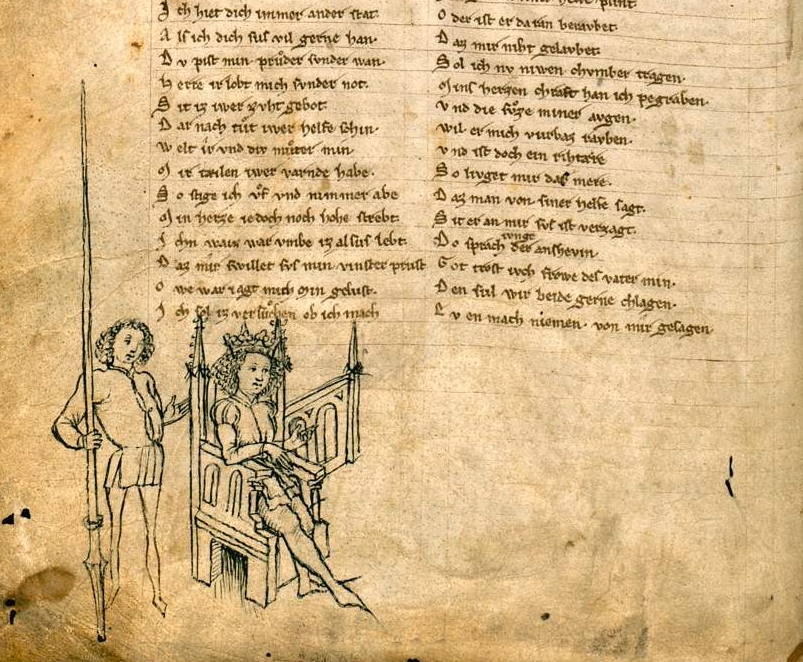 I ch hiet dich immer ander stat.
A ls ich dich sus vil gerne han.
D v pist min průder svnder wan.
h erre ir lobt mich svnder not.
S it iz iwer zvht gebot.
D ar nach tůt iwer helfe schin.
W elt ir vnd div můter min
M ir tailen iwer varnde habe.
S o stige ich vf vnd nimmer abe
M in herze iedoch noch hohe strebt.
I chn waiz war vmbe iz alsus lebt.
D az mir swillet svs min prust
O we war iagt mich min gelust.
I ch sol iz versůchen ob ich mach
O der ist er da ran beravbet
D az mir niht gelavbet
S ol ich nv niwen chvmber tragen.
M ins herzen chraft han ich pegraben.
v nd die sůze miner avgen.
wil er mich vurbaz ravben.
v nd ist doch ein rihtære
S o livget mir daz mere.
D az man von siner helfe sagt.
S it er an mir svs ist verzagt.
D o sprach der ivnge anshevin.
G ot trost ivch frowe des vater min.
D en sul wir beide gerne chlagen.
en mach niemen. von mir gesagen.